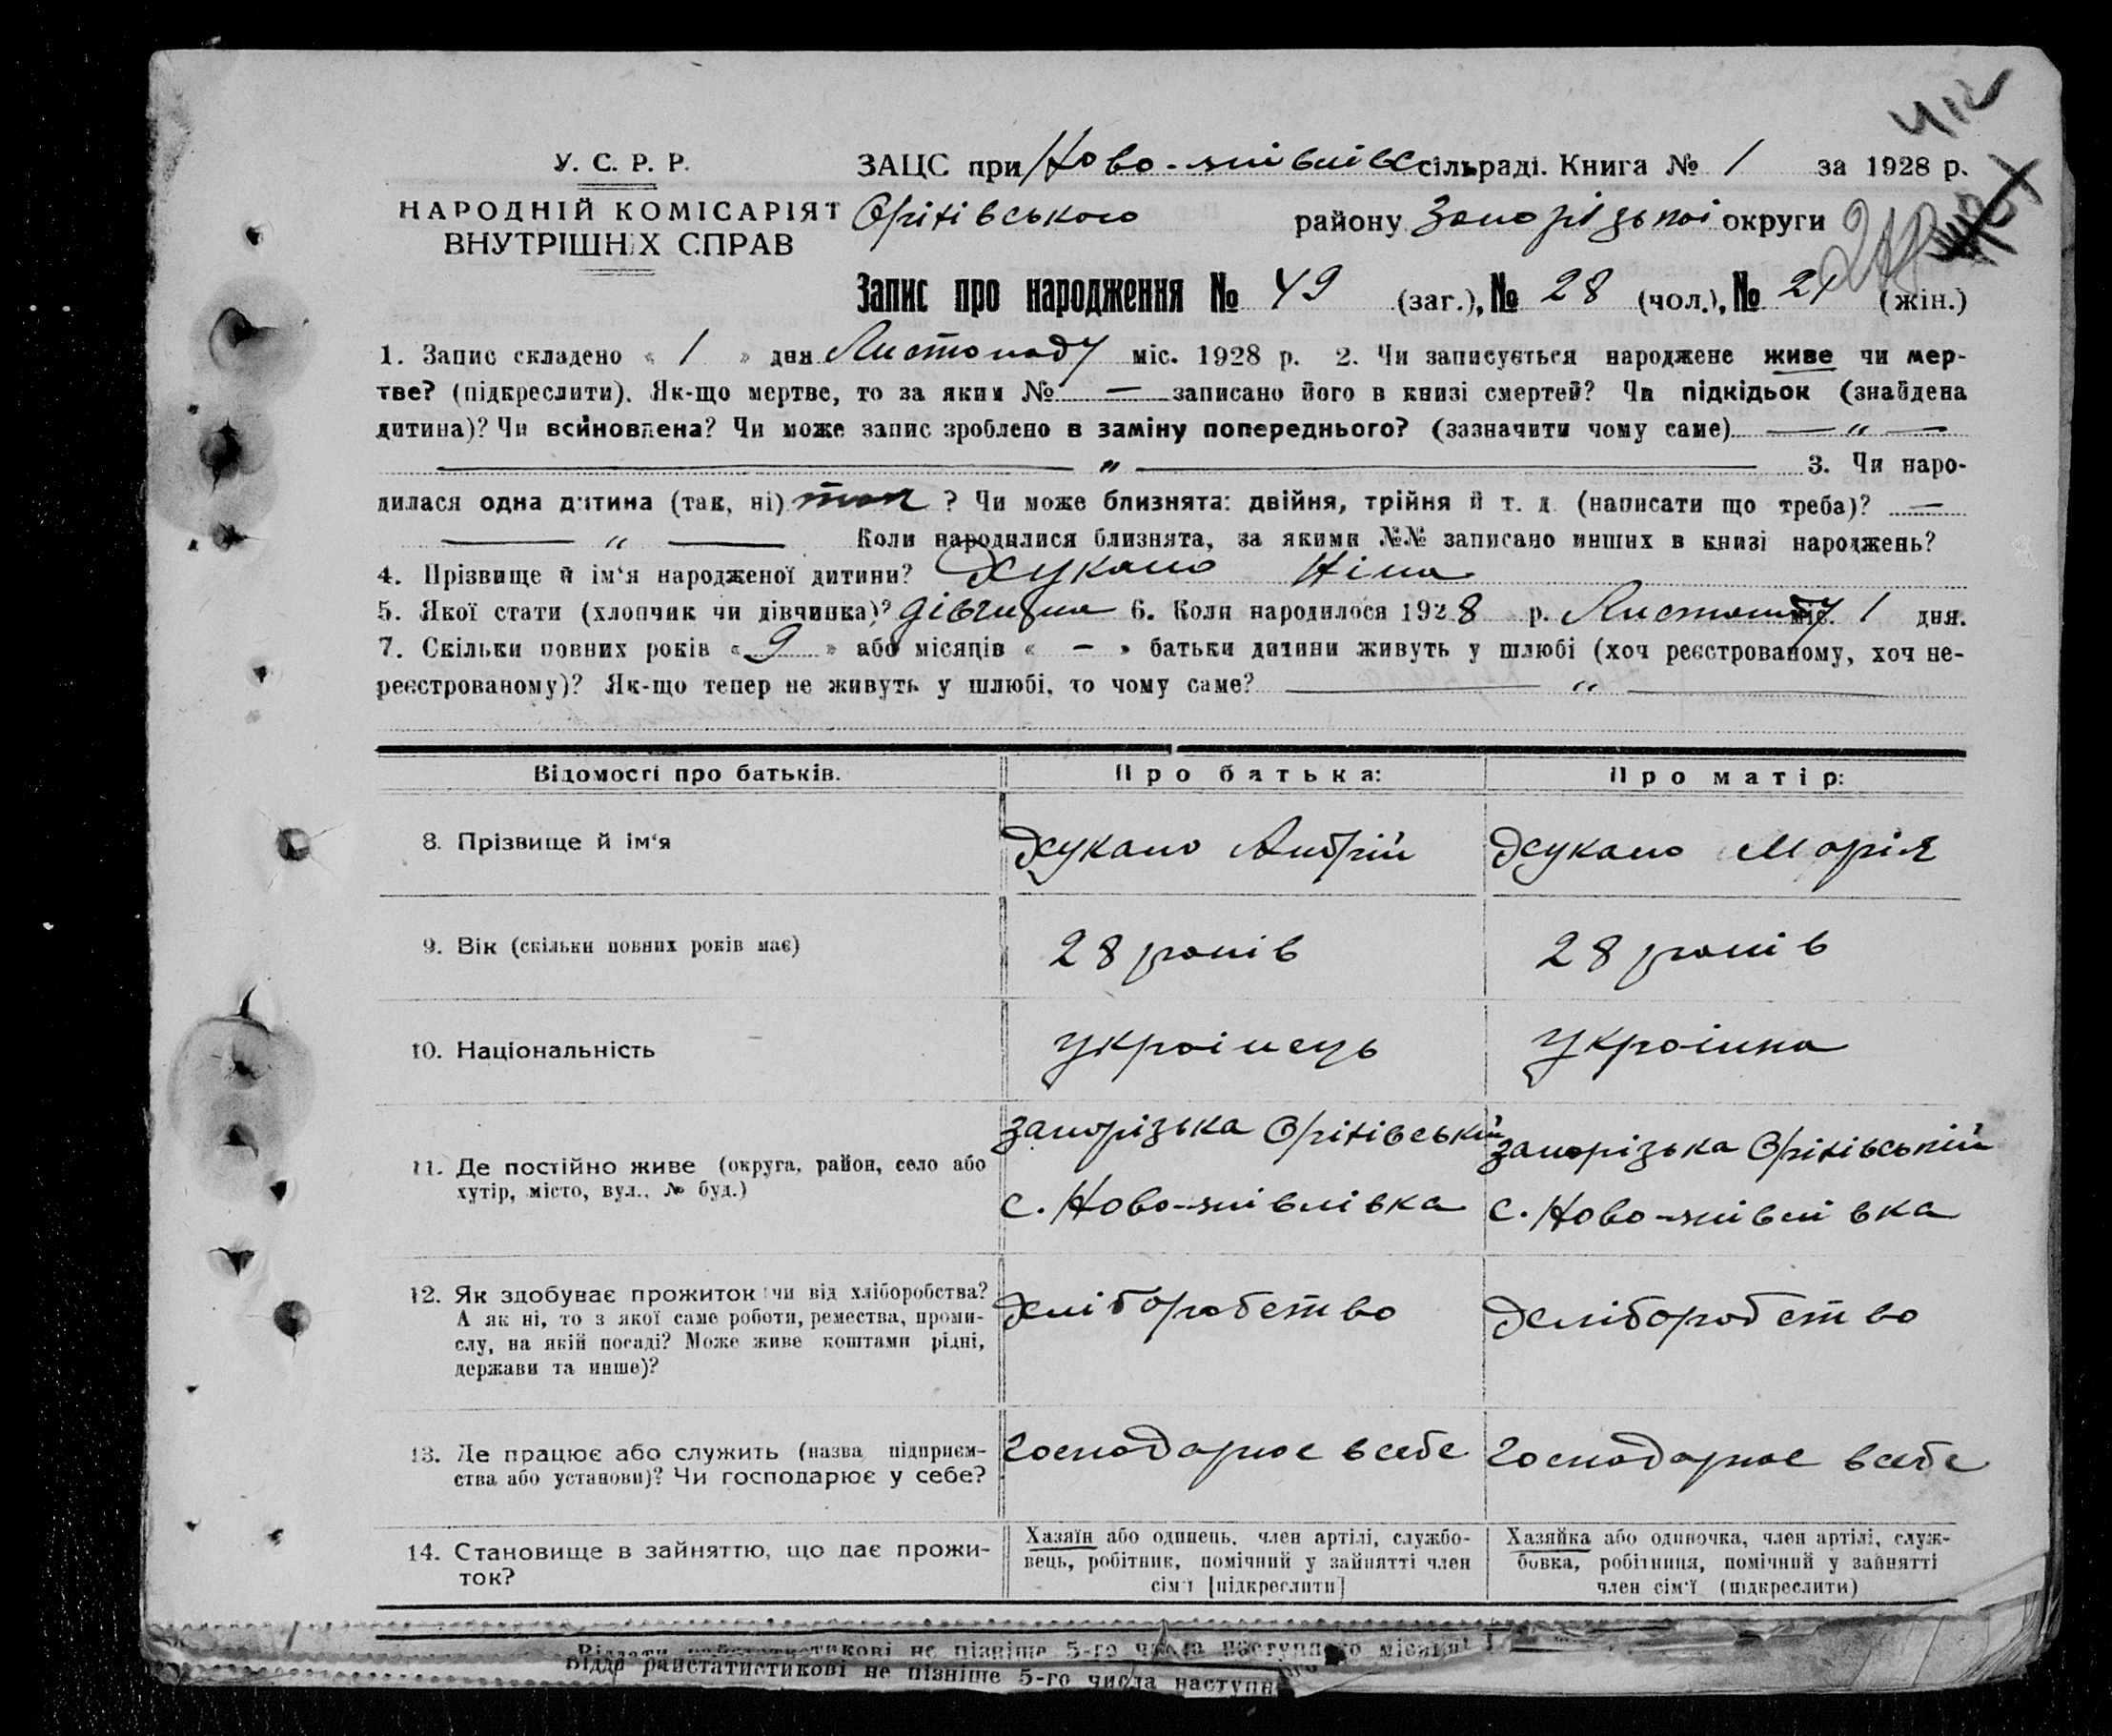 412
У. С. Р. Р.
НАРОДНІЙ КОМІСАРІЯТ
ВНУТРІШНІХ СПРАВ
ЗАЦС при Ново-                сільраді. Книга № 1 за 1928 р.
Оріхівського району Запорізької округи
Запис про народження № 49 (заг.), № 28 (чол.), № 21 (жін.)
1. Запис складено « 1 » дня Листопаду міс. 1928 р. 2. Чи записується народжене живе чи мер-
тве? (підкреслити). Як-що мертве, то за яким № — записано його в книзі смертей? Чи підкідьок (знайдена
дитина)? Чи всиновлена? Чи може запис зроблено в заміну попереднього? (зазначити чому саме) — „ —
— „ — 3. Чи наро-
дилася одна дитина (так, ні) так ? Чи може близнята: двійня, трійня й т. д. (написати що треба)? —
— „ — Коли народилися близнята, за якими №№ записано инших в книзі народжень?
4. Прізвище й ім‘я народженої дитини? Ніна
5. Якої стати (хлопчик чи дівчинка)? 6. Коли народилося 1928 р. Листопаду міс. 1 дня.
7. Скільки повних років « 9 » або місяців « — » батьки дитини живуть у шлюбі (хоч реєстрованому, хоч не-
реєстрованому)? Як-що тепер не живуть у шлюбі, то чому саме? — „ —
Відомості про батьків. Про батька: Про матір:
8. Прізвище й ім‘я Андрій Марія
9. Вік (скільки повних років має) 28 років 28 років
10. Національність українець українка
11. Де постійно живе (округа, район, село або
хутір, місто, вул., № буд.)
запорізька Оріхівський
с. Ново-
запорізька Оріхівський
с. Ново-
12. Як здобуває прожиток: чи від хліборобства?
А як ні, то з якої саме роботи, ремества, проми-
слу, на якій посаді? Може живе коштами рідні,
держави та инше)?
хліборобство хліборобство
13. Де працює або служить (назва підприєм-
ства або установи)? Чи господарює у себе?
господарює в себе господарює в себе
14. Становище в зайняттю, що дає прожи-
ток?
Хазяїн або одинець, член артілі, службо-
вець, робітник, помічний у зайнятті член
сім‘ї [підкреслити]
Хазяйка або одиночка, член артілі, служ-
бовка, робітниця, помічний у зайнятті
член сім‘ї (підкреслити)
не пізніше 5-го числа наступного місяця!
не пізніше 5-го числа наступн